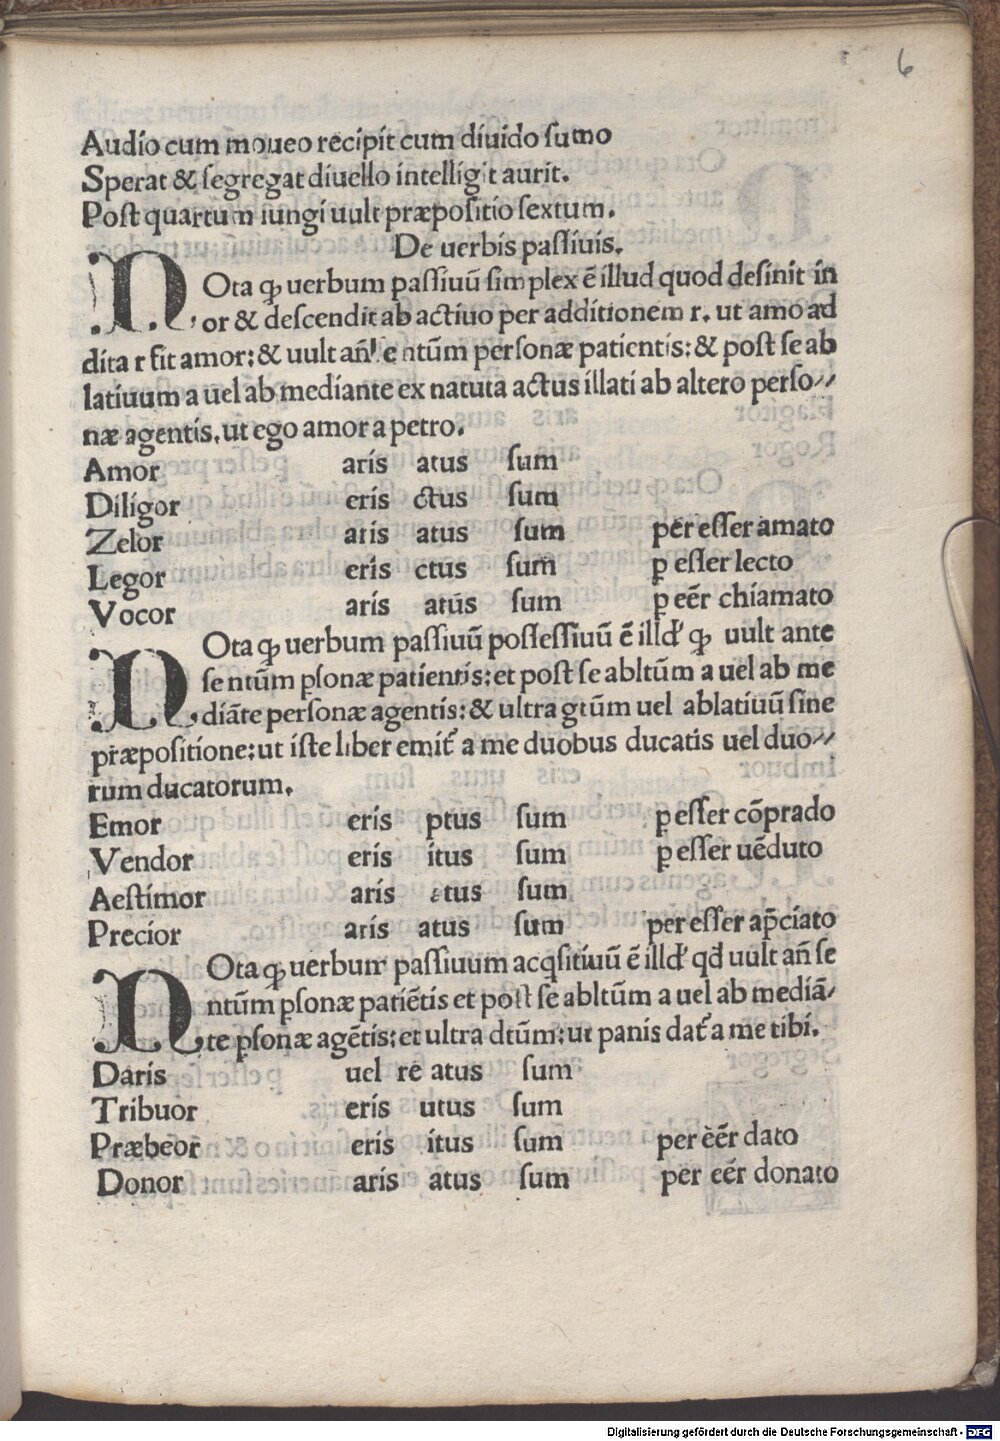 6
Audio cum moueo recipit cum diuido sumo
Sperat & segregat diuello intelligit aurit.
Post quartum iungi uult præpositio sextum.
De uerbis passiuis.
NOta ꝙ uerbum passiuū simplex ē illud quod desinit in
or & descendit ab actiuo per additionem r. ut amo ad
dita r fit amor: & uult añ se ntūm personæ patientis: & post se ab
latiuum a uel ab mediante ex natuta actus illati ab altero perso⸗
næ agentis. ut ego amor a petro.
Amor aris atus sum
Diligor eris ctus sum
Zelor aris atus sum per esser amato
Legor eris ctus sum ꝑ esser lecto
Vocor aris atus sum ꝑ eēr chiamato
NOta ꝙ uerbum passiuū possessiuū ē illd' ꝙ uult ante
se ntūm ꝑsonæ patientis: et post se abltūm a uel ab me
diāte personæ agentis: & ultra gtūm uel ablatiuū sine
præpositione: ut iste liber emit᷑ a me duobus ducatis uel duo⸗
rum ducatorum.
Emor eris ptus sum ꝑ esser cōprado
Vendor eris itus sum ꝑ esser uēduto
Aestimor aris atus sum
Precior aris atus sum per esser ap̄ciato
NOta ꝙ uerbum passiuum acqsitiuū ē illd' qd uult añ se
ntūm ꝑsonæ patiētis et post se abltūm a uel ab mediā⸗
te ꝑsonæ agētis: et ultra dtūm: ut panis dat᷑ a me tibi.
Daris uel re atus sum
Tribuor eris utus sum
Præbeor eris itus sum per eēr dato
Donor aris atus sum per eēr donato
Digitalisierung gefördert durch die Deutsche Forschungsgemeinschaft - DFG